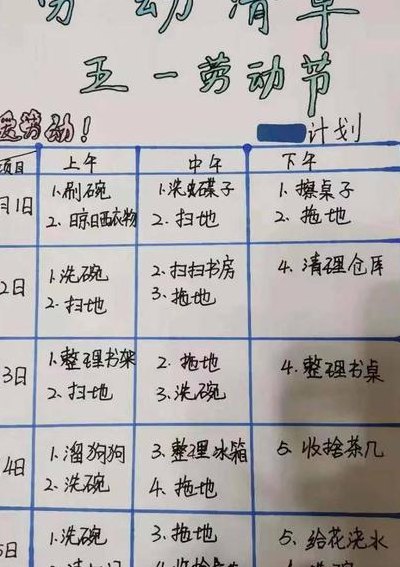 劳动清单
五一劳动节
爱劳动！
计划
项目 上午 中午 下午
月1日 1.刷碗 1.洗蚊碟子 1.擦桌子
2.晾晒衣物 2.扫地 2.拖地
2日 1.洗碗 2.扫扫书房 4.清理仓库
2.扫地 3.拖地
3日 1.整理书架 2.拖地 4.整理书桌
2.扫地 3.洗碗
4日 1.溜狗狗 3.整理冰箱 5.收捨茶几
2.洗碗 4.拖地
5日 1.洗碗 3.拖地 5.给花浇水